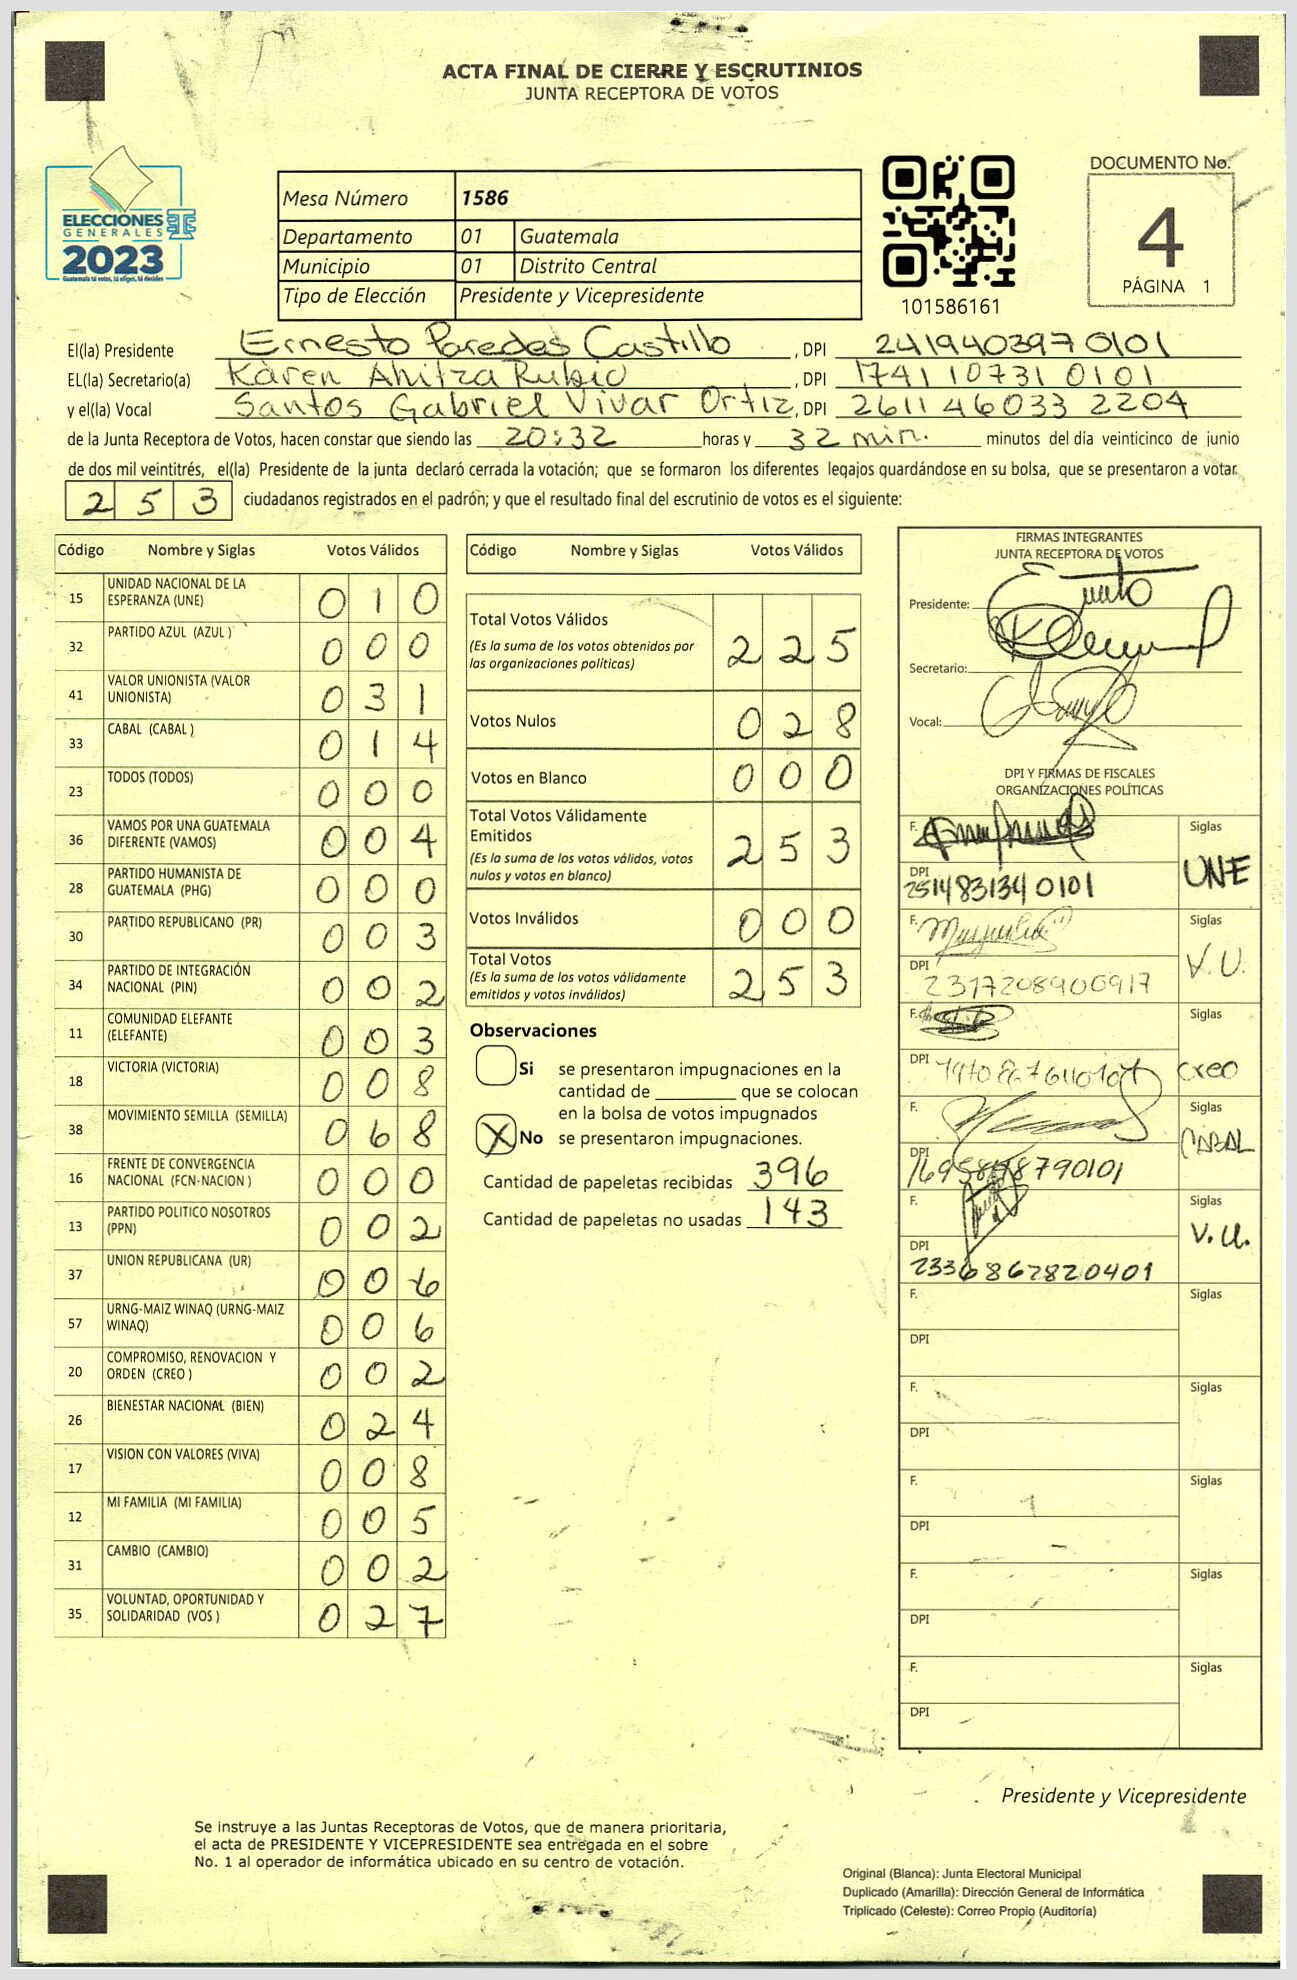 ACTA FINAL DE CIERRE Y ESCRUTINIOS
JUNTA RECEPTORA DE VOTOS
ELECCIONES
GENERALES
2023
Guatemala tú votas, tú eliges, tú decides
Mesa Número 1586
Departamento 01 Guatemala
Municipio 01 Distrito Central
Tipo de Elección Presidente y Vicepresidente
101586161
DOCUMENTO No.
4
PÁGINA 1
El(la) Presidente Ernesto Paredes Castillo, DPI 2419403970101
EL(la) Secretario(a) Karen Ahitza Rubio, DPI 1741107310101
y el(la) Vocal Santos Gabriel Vivar Ortiz, DPI 2611460332204
de la Junta Receptora de Votos, hacen constar que siendo las 20:32 horas y 32 min. minutos del día veinticinco de junio
de dos mil veintitrés, el(la) Presidente de la junta declaró cerrada la votación; que se formaron los diferentes legajos guardándose en su bolsa, que se presentaron a votar
253 ciudadanos registrados en el padrón; y que el resultado final del escrutinio de votos es el siguiente:
Código Nombre y Siglas Votos Válidos
15 UNIDAD NACIONAL DE LA ESPERANZA (UNE) 010
32 PARTIDO AZUL (AZUL ) 000
41 VALOR UNIONISTA (VALOR UNIONISTA) 031
33 CABAL (CABAL ) 014
23 TODOS (TODOS) 000
36 VAMOS POR UNA GUATEMALA DIFERENTE (VAMOS) 004
28 PARTIDO HUMANISTA DE GUATEMALA (PHG) 000
30 PARTIDO REPUBLICANO (PR) 003
34 PARTIDO DE INTEGRACIÓN NACIONAL (PIN) 002
11 COMUNIDAD ELEFANTE (ELEFANTE) 003
18 VICTORIA (VICTORIA) 008
38 MOVIMIENTO SEMILLA (SEMILLA) 068
16 FRENTE DE CONVERGENCIA NACIONAL (FCN-NACION ) 000
13 PARTIDO POLITICO NOSOTROS (PPN) 002
37 UNION REPUBLICANA (UR) 006
57 URNG-MAIZ WINAQ (URNG-MAIZ WINAQ) 006
20 COMPROMISO, RENOVACION Y ORDEN (CREO ) 002
26 BIENESTAR NACIONAL (BIEN) 024
17 VISION CON VALORES (VIVA) 008
12 MI FAMILIA (MI FAMILIA) 005
31 CAMBIO (CAMBIO) 002
35 VOLUNTAD, OPORTUNIDAD Y SOLIDARIDAD (VOS ) 027
Código Nombre y Siglas Votos Válidos
Total Votos Válidos 225
(Es la suma de los votos obtenidos por
las organizaciones políticas)
Votos Nulos 028
Votos en Blanco 000
Total Votos Válidamente
Emitidos 253
(Es la suma de los votos válidos, votos
nulos y votos en blanco)
Votos Inválidos 000
Total Votos 253
(Es la suma de los votos válidamente
emitidos y votos inválidos)
Observaciones
Si se presentaron impugnaciones en la
cantidad de ________ que se colocan
en la bolsa de votos impugnados
X No se presentaron impugnaciones.
Cantidad de papeletas recibidas 396
Cantidad de papeletas no usadas 143
FIRMAS INTEGRANTES
JUNTA RECEPTORA DE VOTOS
Presidente:
Secretario:
Vocal:
DPI Y FIRMAS DE FISCALES
ORGANIZACIONES POLÍTICAS
F. Siglas
DPI 2514831340101 UNE
F. Siglas
DPI 2317208900917 V.U.
F. Siglas
DPI creo
F. Siglas
DPI CABAL
F. Siglas
DPI 2336867820401 V.U.
F. Siglas
DPI
F. Siglas
DPI
F. Siglas
DPI
F. Siglas
DPI
F. Siglas
DPI
Presidente y Vicepresidente
Se instruye a las Juntas Receptoras de Votos, que de manera prioritaria,
el acta de PRESIDENTE Y VICEPRESIDENTE sea entregada en el sobre
No. 1 al operador de informática ubicado en su centro de votación.
Original (Blanca): Junta Electoral Municipal
Duplicado (Amarilla): Dirección General de Informática
Triplicado (Celeste): Correo Propio (Auditoría)